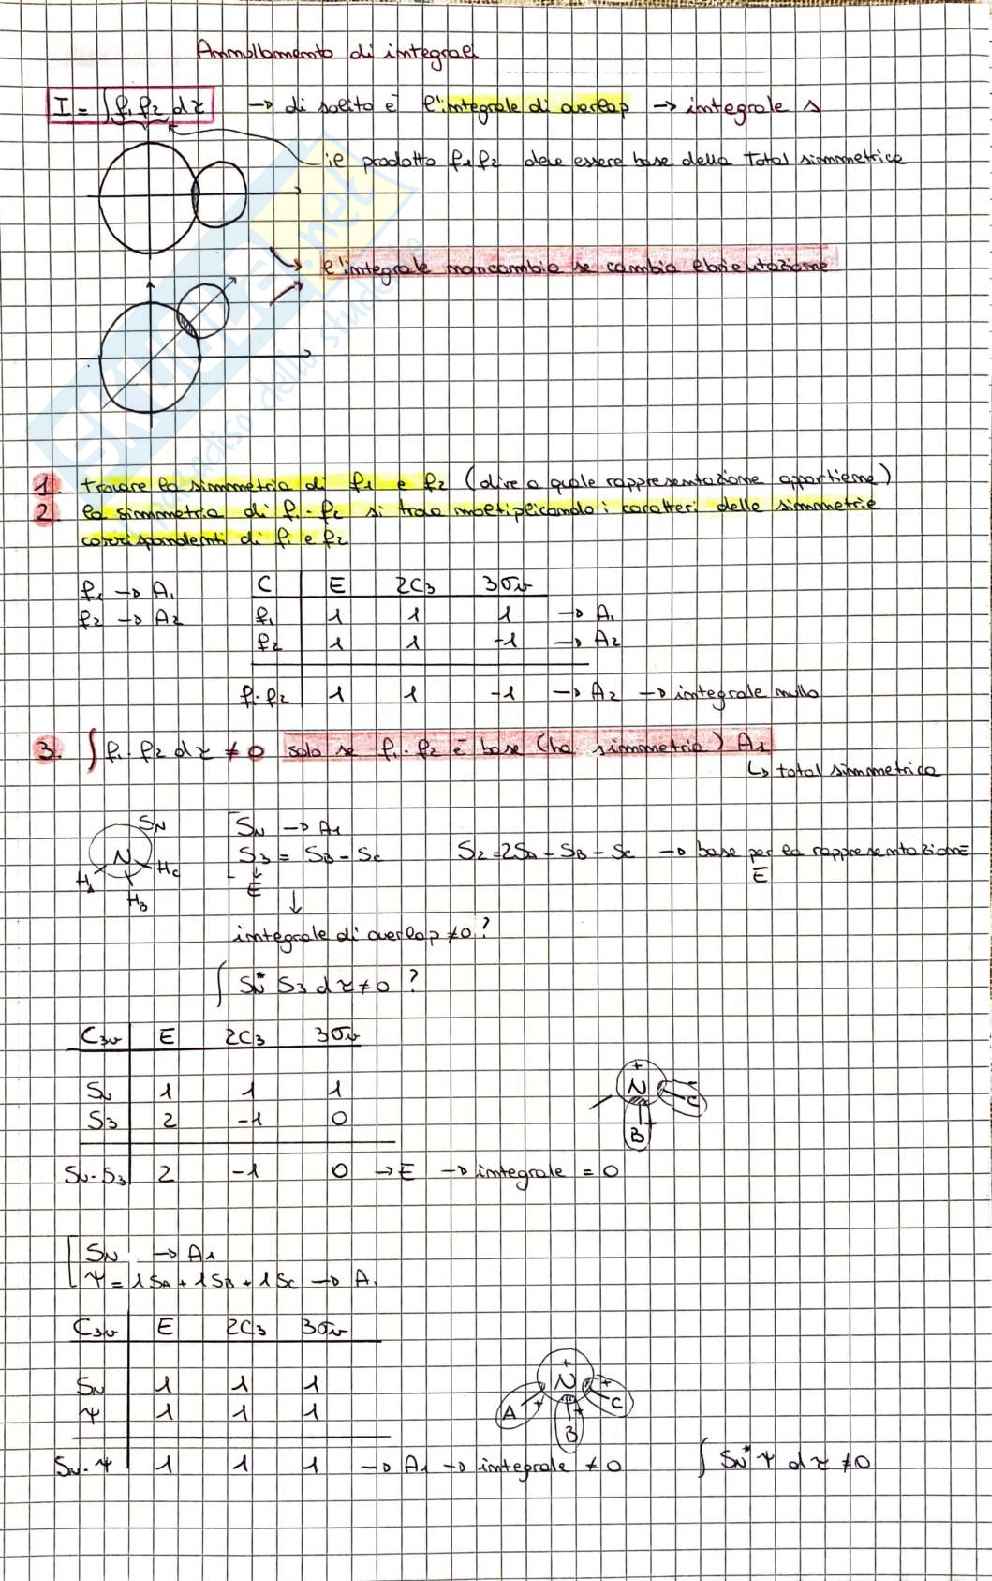 Annullamento di integrali
I = ∫f₁ f₂ dτ → di solito è l'integrale di overlap → integrale s
il prodotto f₁ f₂ deve essere base della total simmetrica
l'integrale non cambia se cambia l'orientazione
1. trovare la simmetria di f₁ e f₂ (dire a quale rappresentazione appartiene)
2. la simmetria di f₁·f₂ si trova moltiplicando i caratteri delle simmetrie
corrispondenti di f₁ e f₂
f₁ → A₁ C E 2C₃ 3σv
f₂ → A₂ f₁ 1 1 1 → A₁
f₂ 1 1 -1 → A₂
f₁·f₂ 1 1 -1 → A₂ → integrale nullo
3. ∫f₁·f₂ dτ ≠ 0 solo se f₁·f₂ è base (ha simmetria) A₁
↳ total simmetrica
SN
N
HA
HB
HC
SN → A₁
S₃ = SB - SC S₂ = 2SA - SB - SC → base per la rappresentazione
E E
↓
integrale di overlap ≠0?
∫ SN* S₃ dτ ≠ 0 ?
C₃v E 2C₃ 3σv
SN 1 1 1
S₃ 2 -1 0
SN·S₃ 2 -1 0 → E → integrale = 0
+ N - C
+ B
SN → A₁
Ψ = 1SA + 1SB + 1SC → A₁
C₃v E 2C₃ 3σv
SN 1 1 1
Ψ 1 1 1
SN·Ψ 1 1 1 → A₁ → integrale ≠ 0 ∫ SN* Ψ dτ ≠ 0
+ N
A + + C
+ B
SKUOLA.net
paradiso dello studente